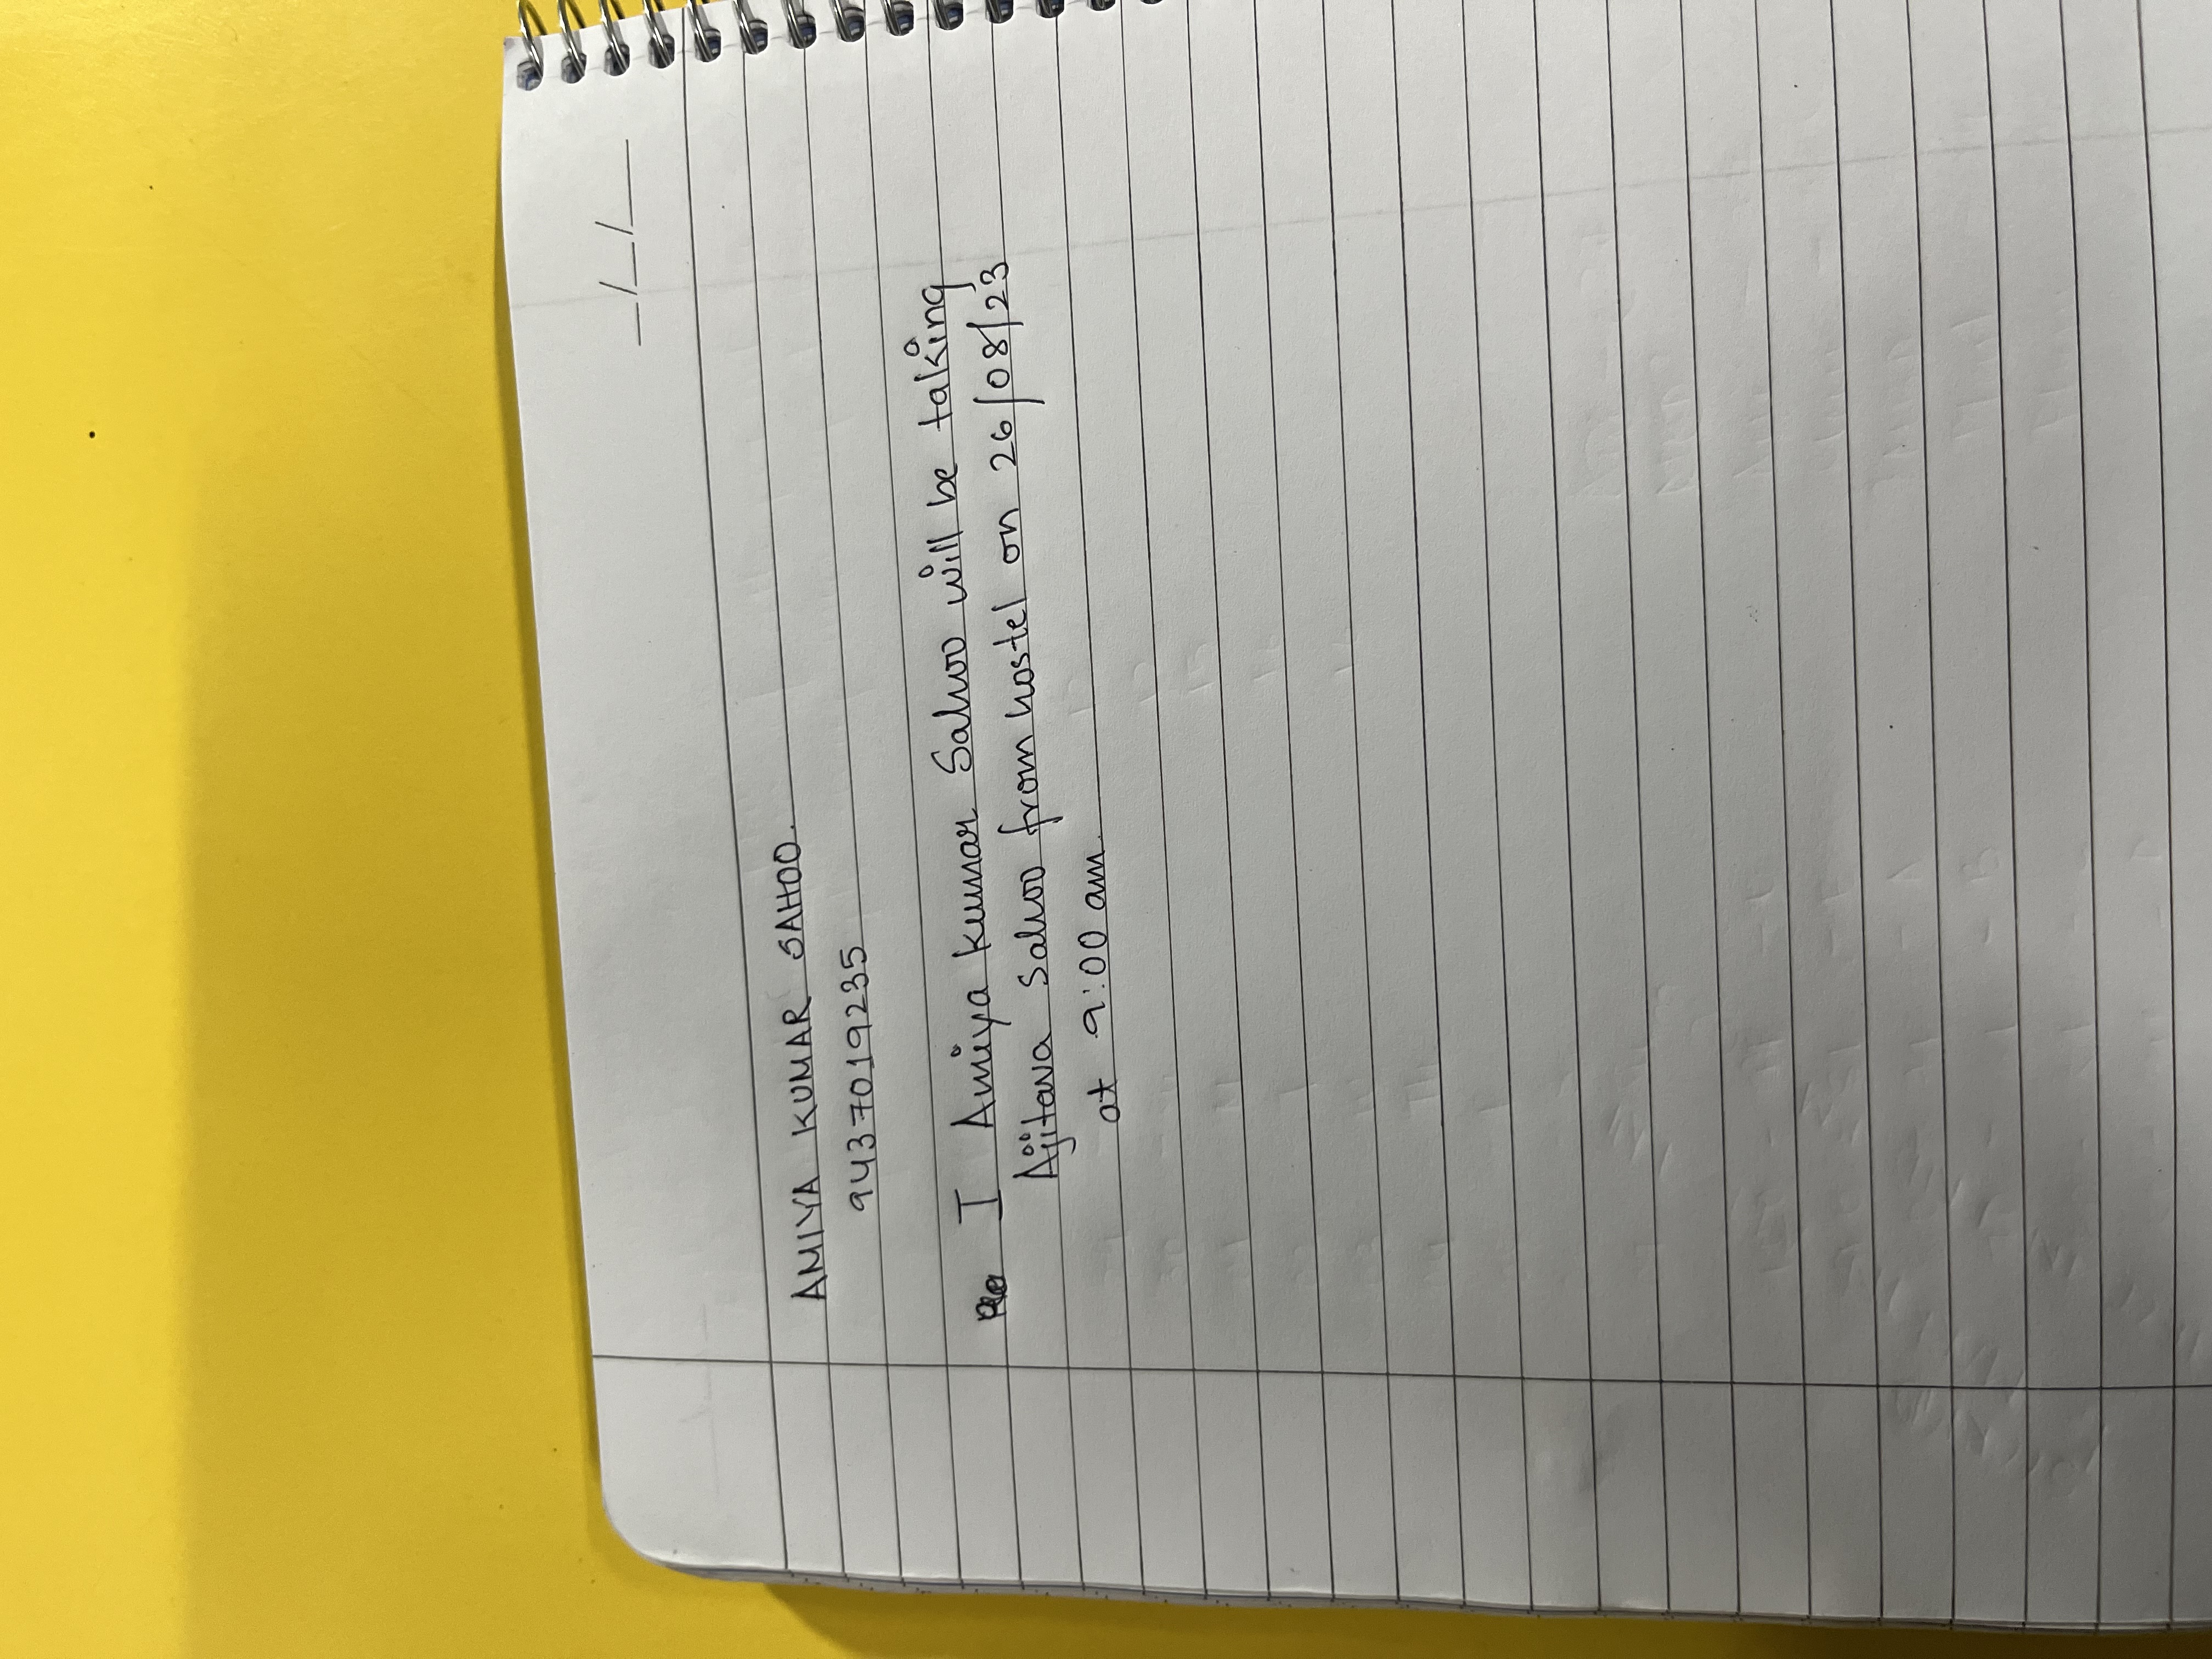 __/__/____
AMIYA KUMAR SAHOO.
9437019235
I Amiya kumar Sahoo will be taking
Ajitava Sahoo from hostel on 26/08/23
at 9:00 am.